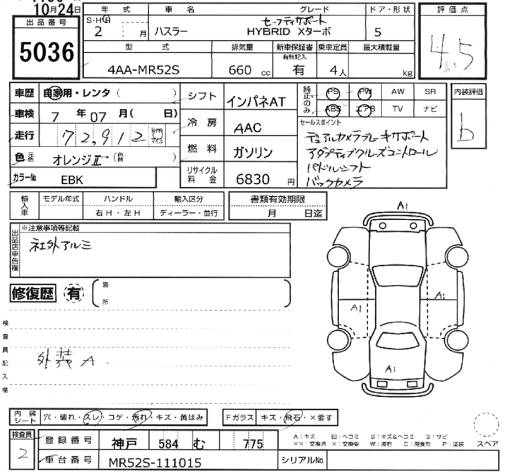 10月24日
出品番号
5036
年式
S・H・R
2 月
車名
ハスラー
グレード
セーフティサポート
HYBRID Xターボ
ドア・形状
5
評価点
4.5
型式
4AA-MR52S
排気量
660 cc
新車保証書
有無記入
有
乗車定員
4人
最大積載量
kg
車歴 自家用・レンタ( )
車検 7年 07月( 日)
走行 72,912 km
色 オレンジⅡ
カラーNo
EBK
シフト インパネAT
冷房 AAC
燃料 ガソリン
リサイクル料金 6830円
純正のみ
PS PW AW SR
ABS エアB TV ナビ
セールスポイント
デュアルカメラブレーキサポート
アダプティブクルーズコントロール
パドルシフト
バックカメラ
内装評価
b
輸入車
モデル年式
ハンドル
右H・左H
輸入区分
ディーラー・並行
書類有効期限
月 日迄
出品店申告欄
※注意事項等記載
社外アルミ
修復歴 有
箇所
検査員記入欄
外装A
A1
A1
A1
A1
A1
内装シート
穴・破れ・スレ・コゲ・汚れ・キズ・黄ばみ
Fガラス
キズ・飛石・×要す
スペア
検査員
2
登録番号 神戸 584 む 775
車台番号 MR52S-111015
シリアルNo.